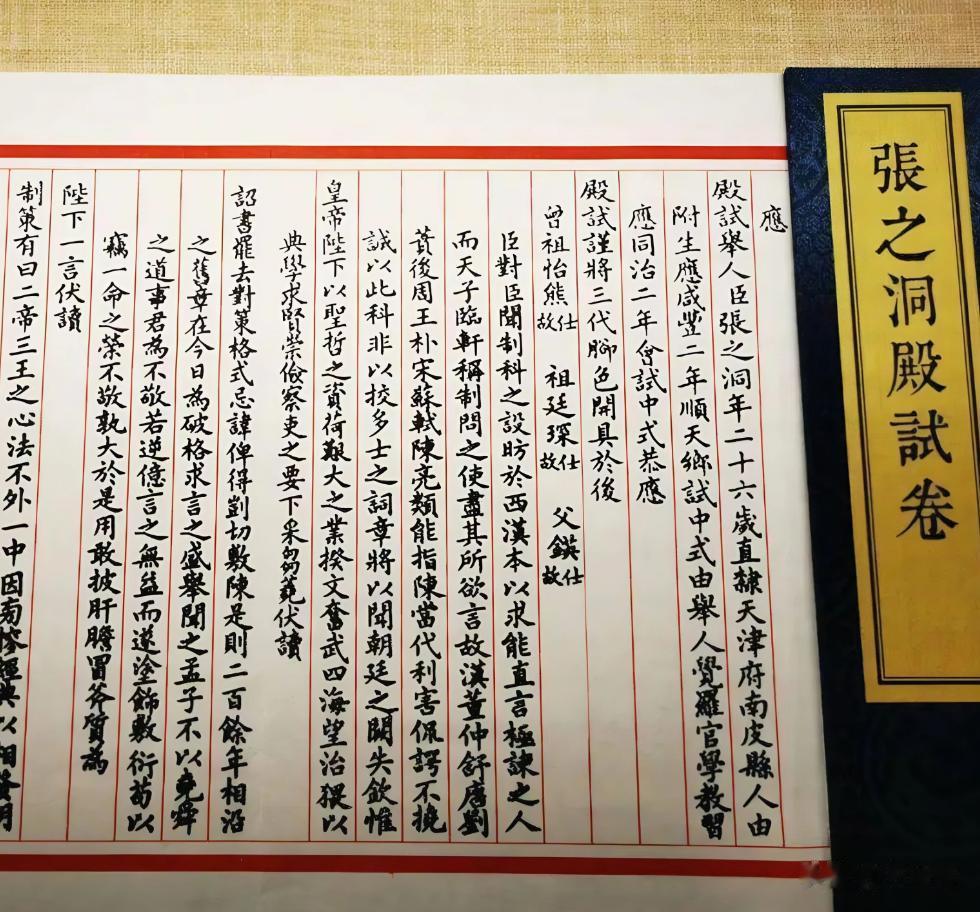 張之洞殿試卷
應
殿試舉人臣張之洞年二十六歲直隸天津府南皮縣人由
附生應咸豐二年順天鄉試中式由舉人覺羅官學教習
應同治二年會試中式恭應
殿試謹將三代腳色開具於後
曾祖怡熊故仕 祖廷琛故仕 父鍈故仕
臣對臣聞制科之設昉於西漢本以求能直言極諫之人
而天子臨軒稱制問之使盡其所欲言故漢董仲舒唐劉
蕡後周王朴宋蘇軾陳亮類能指陳當代利害侃諤不撓
誠以此科非以挍多士之詞章將以聞朝廷之闕失欽惟
皇帝陛下以聖哲之資荷艱大之業揆文奮武四海望治猥以
典學求賢崇儉察吏之要下采芻蕘伏讀
詔書罷去對策格式忌諱俾得剴切敷陳是則二百餘年相沿
之舊章在今日為破格求言之盛舉聞之孟子不以堯舜
之道事君為不敬若逆億言之無益而遂塗飾敷衍苟以
竊一命之榮不敬孰大於是用敢披肝膽冒斧質為
陛下一言伏讀
制策有曰二帝三王之心法不外一中因而參經典以相發明